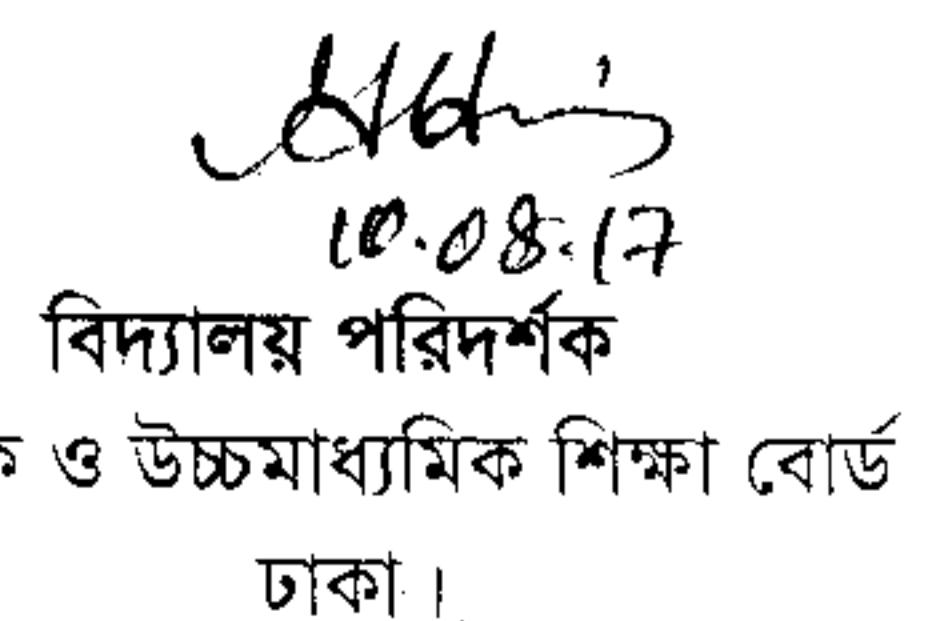 10.08.17
বিদ্যালয় পরিদর্শক
ক ও উচ্চমাধ্যমিক শিক্ষা বোর্ড
ঢাকা।